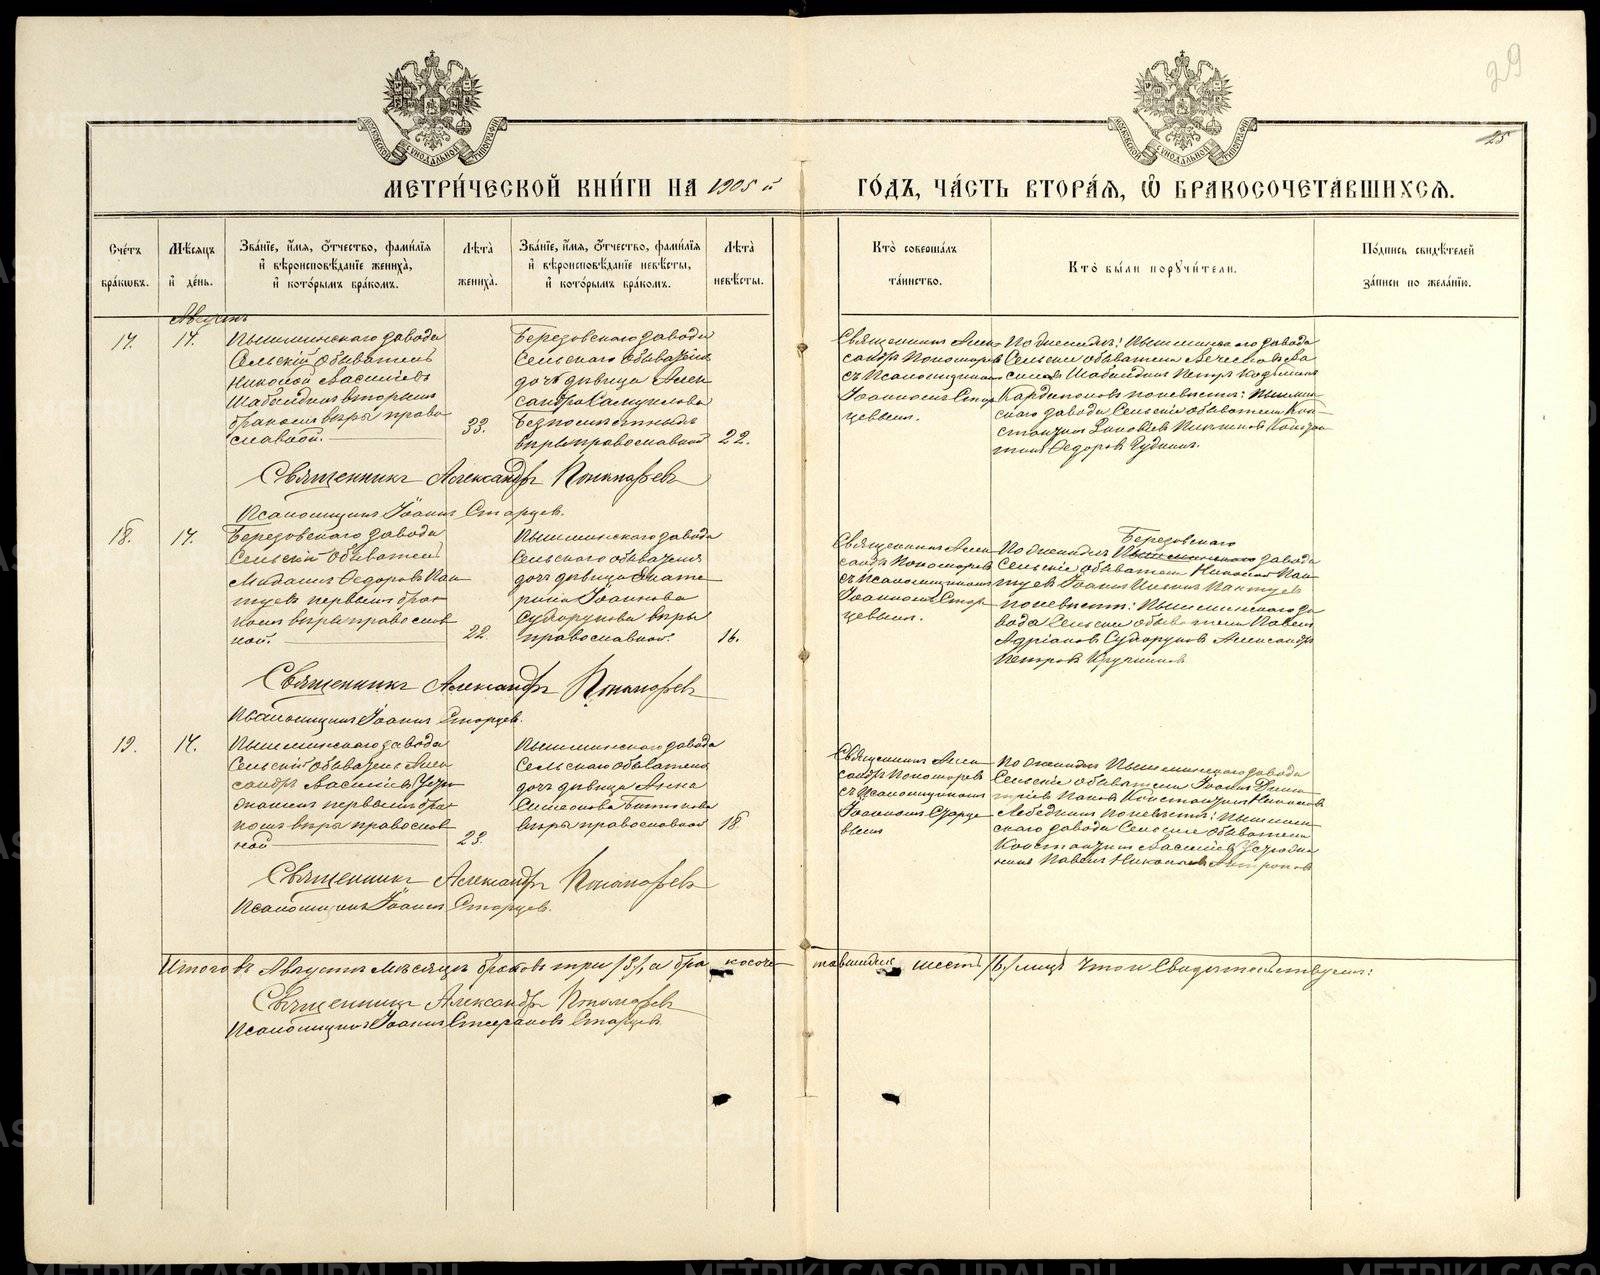 29
25
МОСКОВСКОЙ СѴНОДАЛЬНОЙ ТИПОГРАФІИ
МОСКОВСКОЙ СѴНОДАЛЬНОЙ ТИПОГРАФІИ
МЕТРИ́ЧЕСКОЙ КНИ́ГИ НА 1905 й ГО́ДЪ, ЧА́СТЬ ВТОРА́Ѧ, Ѿ БРАКОСОЧЕТА́ВШИХСѦ.
Сче́тъ бра́кѡвъ.
Мѣ́сяцъ и҆ де́нь.
Зва́нїе, и҆́мѧ, ѻ҆́тчество, фами́лїѧ и҆ вѣроисповѣ́данїе жениха̀, и҆ кото́рымъ бра́комъ.
Лѣ́та жениха̀.
Зва́нїе, и҆́мѧ, ѻ҆́тчество, фами́лїѧ и҆ вѣроисповѣ́данїе невѣ́сты, и҆ кото́рымъ бра́комъ.
Лѣ́та невѣ́сты.
Кто̀ соверша́лъ та́инство.
Кто̀ бы́ли порꙋчи́тели.
По́дпись свидѣ́телей за́писи по жела́нїю.
Августъ
17.
17.
Пышминскаго завода
Сельскій обыватель
Николай Васильевъ
вторымъ
бракомъ вѣры право-
славной.
33.
Березовскаго завода
Сельскаго обывателя
дочь дѣвица Алек-
сандра Самуилова
вѣры православной
22.
Священникъ Алек-
сандръ Пономаревъ
съ Псаломщикомъ
Іоанномъ Стар-
цевымъ.
По женихѣ: Пышминскаго завода
Сельскіе обыватели
Петръ
по невѣстѣ: Пышмин-
скаго завода Сельскіе обыватели Кон-
стантинъ
Федоровъ
Священникъ Александръ Пономаревъ
Псаломщикъ Іоаннъ Старцев.
18.
17.
Березовскаго завода
Сельскій обыватель
Федоровъ Пак-
туевъ первымъ бра-
комъ вѣры православ-
ной.
22.
Пышминскаго завода
Сельскаго обывателя
дочь дѣвица Екате-
рина Іоаннова
Сухорукова вѣры
православной.
16.
Священникъ Алек-
сандръ Пономаревъ
съ Псаломщикомъ
Іоанномъ Стар-
цевымъ.
Березовскаго
По женихѣ Пышминскаго завода
Сельскіе обыватели Николай Пак-
туевъ Іоаннъ Пактуевъ
по невѣстѣ: Пышминскаго за-
вода Сельскіе обыватели Павелъ
Адріановъ Сухоруковъ Александръ
Петровъ
Священникъ Александръ Пономаревъ
Псаломщикъ Іоаннъ Старцев.
19.
17.
Пышминскаго завода
Сельскій обыватель Алек-
сандръ Васильевъ Устю-
жанинъ первымъ бра-
комъ вѣры православ-
ной
23.
Пышминскаго завода
Сельскаго обывателя
дочь дѣвица Анна
Симеонова
вѣры православной
18
Священникъ Алек-
сандръ Пономаревъ
съ Псаломщикомъ
Іоанномъ Старце-
вымъ
По женихѣ Пышминскаго завода
Сельскіе обыватели Іоаннъ Дими-
тріевъ Поповъ Константинъ Николаевъ
Лебедкинъ по невѣстѣ: Пышмин-
скаго завода Сельскіе обыватели
Константинъ Васильевъ Устюжа-
нинъ Павелъ Николаевъ Антроповъ
Священникъ Александръ Пономаревъ
Псаломщикъ Іоаннъ Старцев.
Итого въ Августѣ мѣсяцѣ браковъ три /3/, а бракосоче-тавшихся шесть /6/ лицъ. Что и свидѣтельствуемъ:
Священникъ Александръ Пономаревъ
Псаломщикъ Іоаннъ Стефановъ Старцев.
METRIKI.GASO-URAL.RU